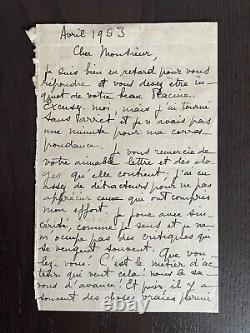 Avril 1953
Cher Monsieur,
Je suis bien en retard pour vous
répondre et vous devez être in-
quiet de votre beau Racine.
Excusez-moi, mais j'ai tourné
sans arrêt et je n'avais pas
une minute pour ma corres-
pondance. Je vous remercie de
votre aimable lettre et des élo-
ges qu'elle contient. J'ai eu
assez de détracteurs pour ne pas
apprécier ceux qui ont compris
mon effort. Je joue avec sin-
cérité, comme je sens et je ne
m'occupe pas des critiques qui
se veuguent souvent. Que vou-
lez-vous! C'est le métier d'ac-
teur qui veut cela! nous le sa-
vons d'avance! Et puis, il y a
souvent des choses vraies parmi
ebay